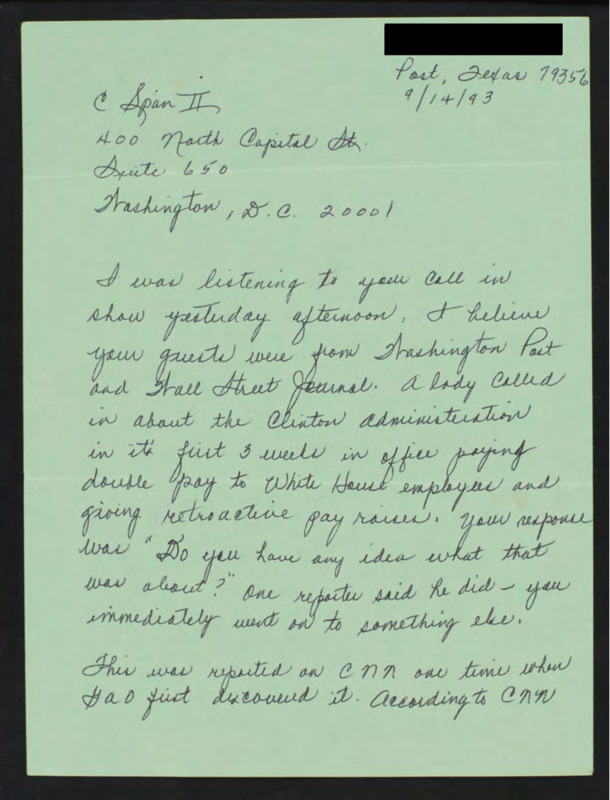 Post, Texas 79356
9/14/93
C Span II
400 North Capital St.
Suite 650
Washington, D.C. 20001
I was listening to your call in
show yesterday afternoon. I believe
your guests were from Washington Post
and Wall Street Journal. A lady called
in about the Clinton administration
in it's first 3 weeks in office paying
double pay to White House employees and
giving retroactive pay raises. Your response
was "Do you have any idea what that
was about?" One reporter said he did – you
immediately went on to something else.
This was reported on CNN one time when
GAO first discovered it. According to CNN